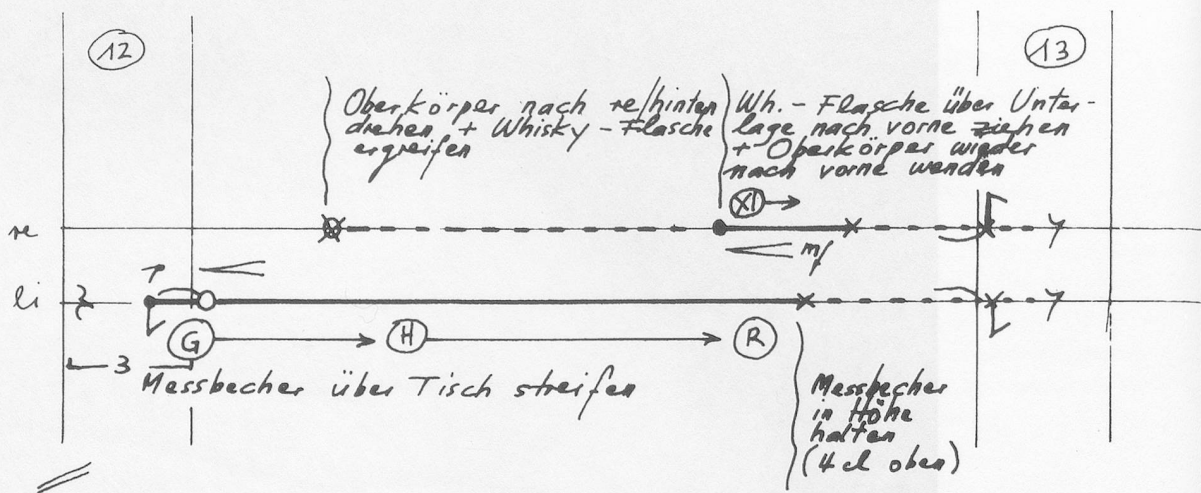 12
13
Oberkörper nach re/hinten
drehen + Whisky-Flasche
ergreifen
Wh.-Flasche über Unter-
lage nach vorne ziehen
+ Oberkörper wieder
nach vorne wenden
XI
re
mf
li
G
H
R
3
Messbecher über Tisch streifen
Messbecher
in Höhe
halten